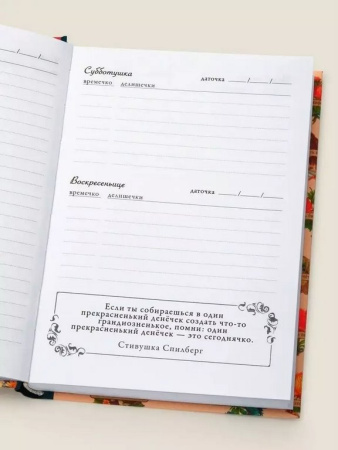 __/__/__
Субботушка
даточка ____/____/____
времечко делишечки
Воскресеньице
даточка ____/____/____
времечко делишечки
Если ты собираешься в один
прекрасненький денёчек создать что-то
грандиозненькое, помни: один
прекрасненький денёчек — это сегоднячко.
Стивушка Спилберг